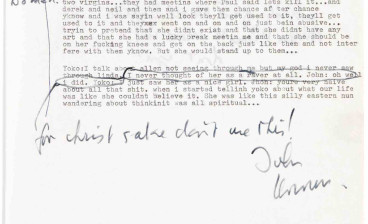 two virgins...they had meetins where Paul said lets kill it...and
derek and neil and them and i gave them chances after chance
yknow and i was sayin well look theyll get used to it, theyll get
used to it and they went on and on and on just bein abusive...
tryin to pretend that she didnt exist and that she didnt have any
art and that she had a lucky break meetin me and that she should be
on her fucking knees and get on the back just like them and not inter
fere with them yknow, but she would stand up to them...
Yoko:I talk about allen not seeing through me but my god i never saw
through linda. I never thought of her as a raver at all. John: oh well
i did. Yoko:I just saw her as a nice girl. John: youre very naive
about all that shit. when i started tellin yoko about what our life
was like she couldnt believe it. She was like this silly eastern nun
wandering about thinkin it was all spiritual...
for christ sake don't use this!
John
Lennon.